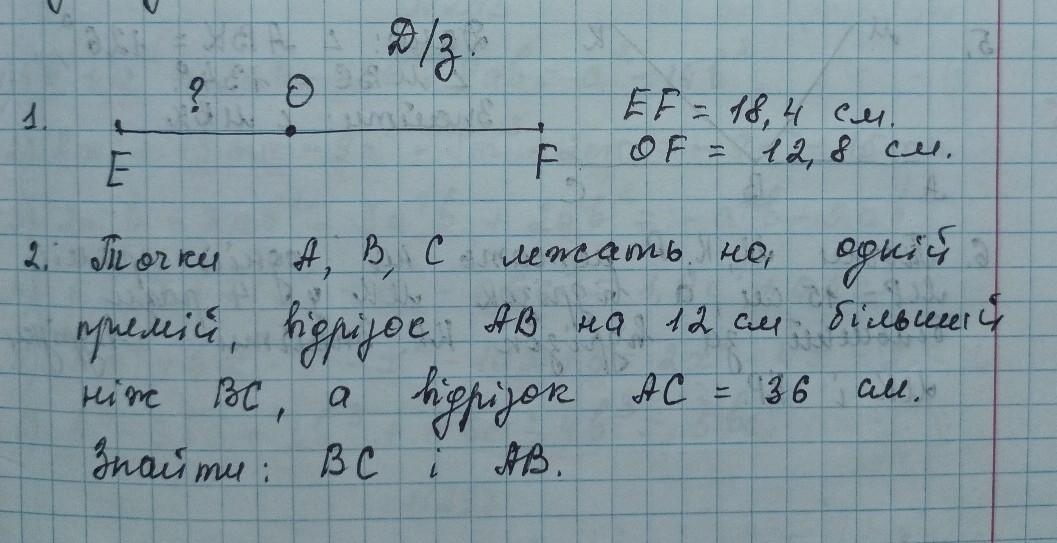 Д/з.
1. ? O EF = 18,4 см.
E F OF = 12,8 см.
2. Точки A, B, C лежать на одній
прямій, відрізок AB на 12 см більший
ніж BC, а відрізок AC = 36 см.
Знайти: BC і AB.